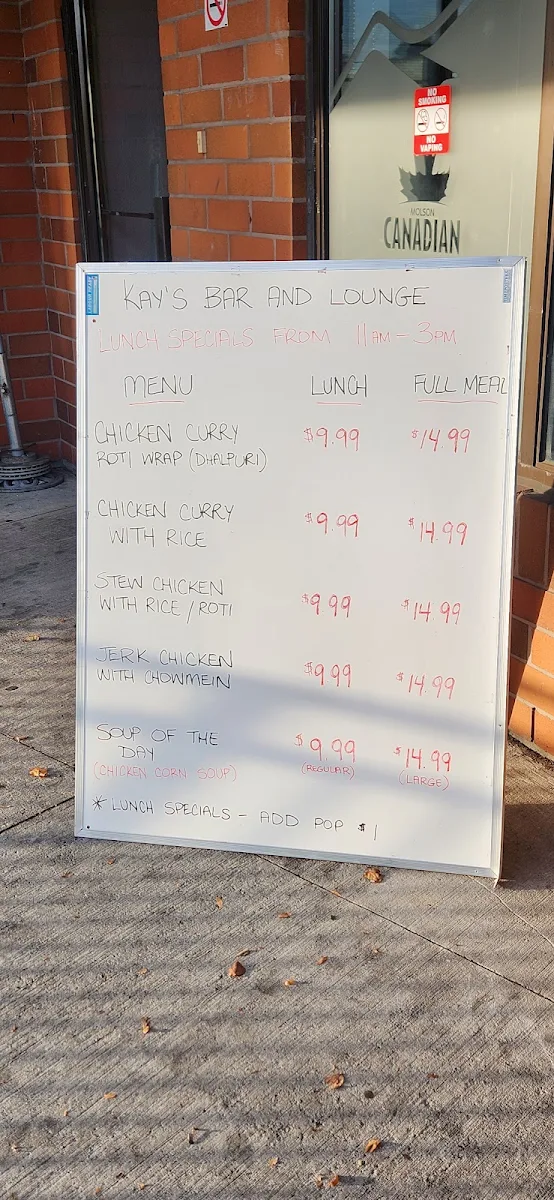 NO SMOKING
NO VAPING
MOLSON
CANADIAN
KAY'S BAR AND LOUNGE
LUNCH SPECIALS FROM 11AM - 3PM
MENU LUNCH FULL MEAL
CHICKEN CURRY $9.99 $14.99
ROTI WRAP (DHALPURI)
CHICKEN CURRY $9.99 $14.99
WITH RICE
STEW CHICKEN $9.99 $14.99
WITH RICE / ROTI
JERK CHICKEN $9.99 $14.99
WITH CHOWMEIN
SOUP OF THE $9.99 $14.99
DAY
(CHICKEN CORN SOUP) (REGULAR) (LARGE)
* LUNCH SPECIALS - ADD POP $1